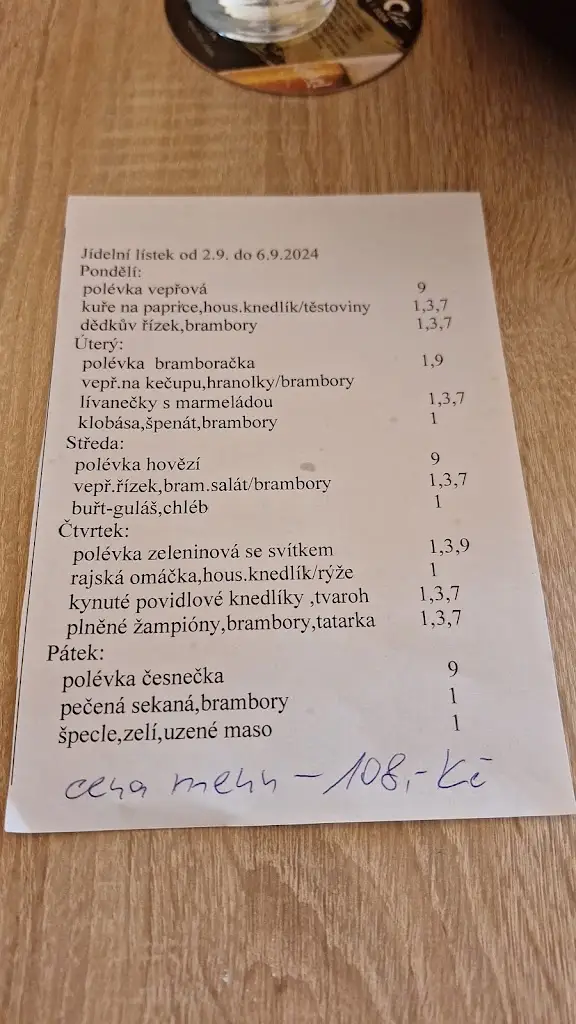 Jídelní lístek od 2.9. do 6.9.2024
Pondělí:
polévka vepřová 9
kuře na paprice,hous.knedlík/těstoviny 1,3,7
dědkův řízek,brambory 1,3,7
Úterý:
polévka bramboračka 1,9
vepř.na kečupu,hranolky/brambory
lívanečky s marmeládou 1,3,7
klobása,špenát,brambory 1
Středa:
polévka hovězí 9
vepř.řízek,bram.salát/brambory 1,3,7
buřt-guláš,chléb 1
Čtvrtek:
polévka zeleninová se svítkem 1,3,9
rajská omáčka,hous.knedlík/rýže 1
kynuté povidlové knedlíky ,tvaroh 1,3,7
plněné žampióny,brambory,tatarka 1,3,7
Pátek:
polévka česnečka 9
pečená sekaná,brambory 1
špecle,zelí,uzené maso 1
cena menu - 108,- Kč